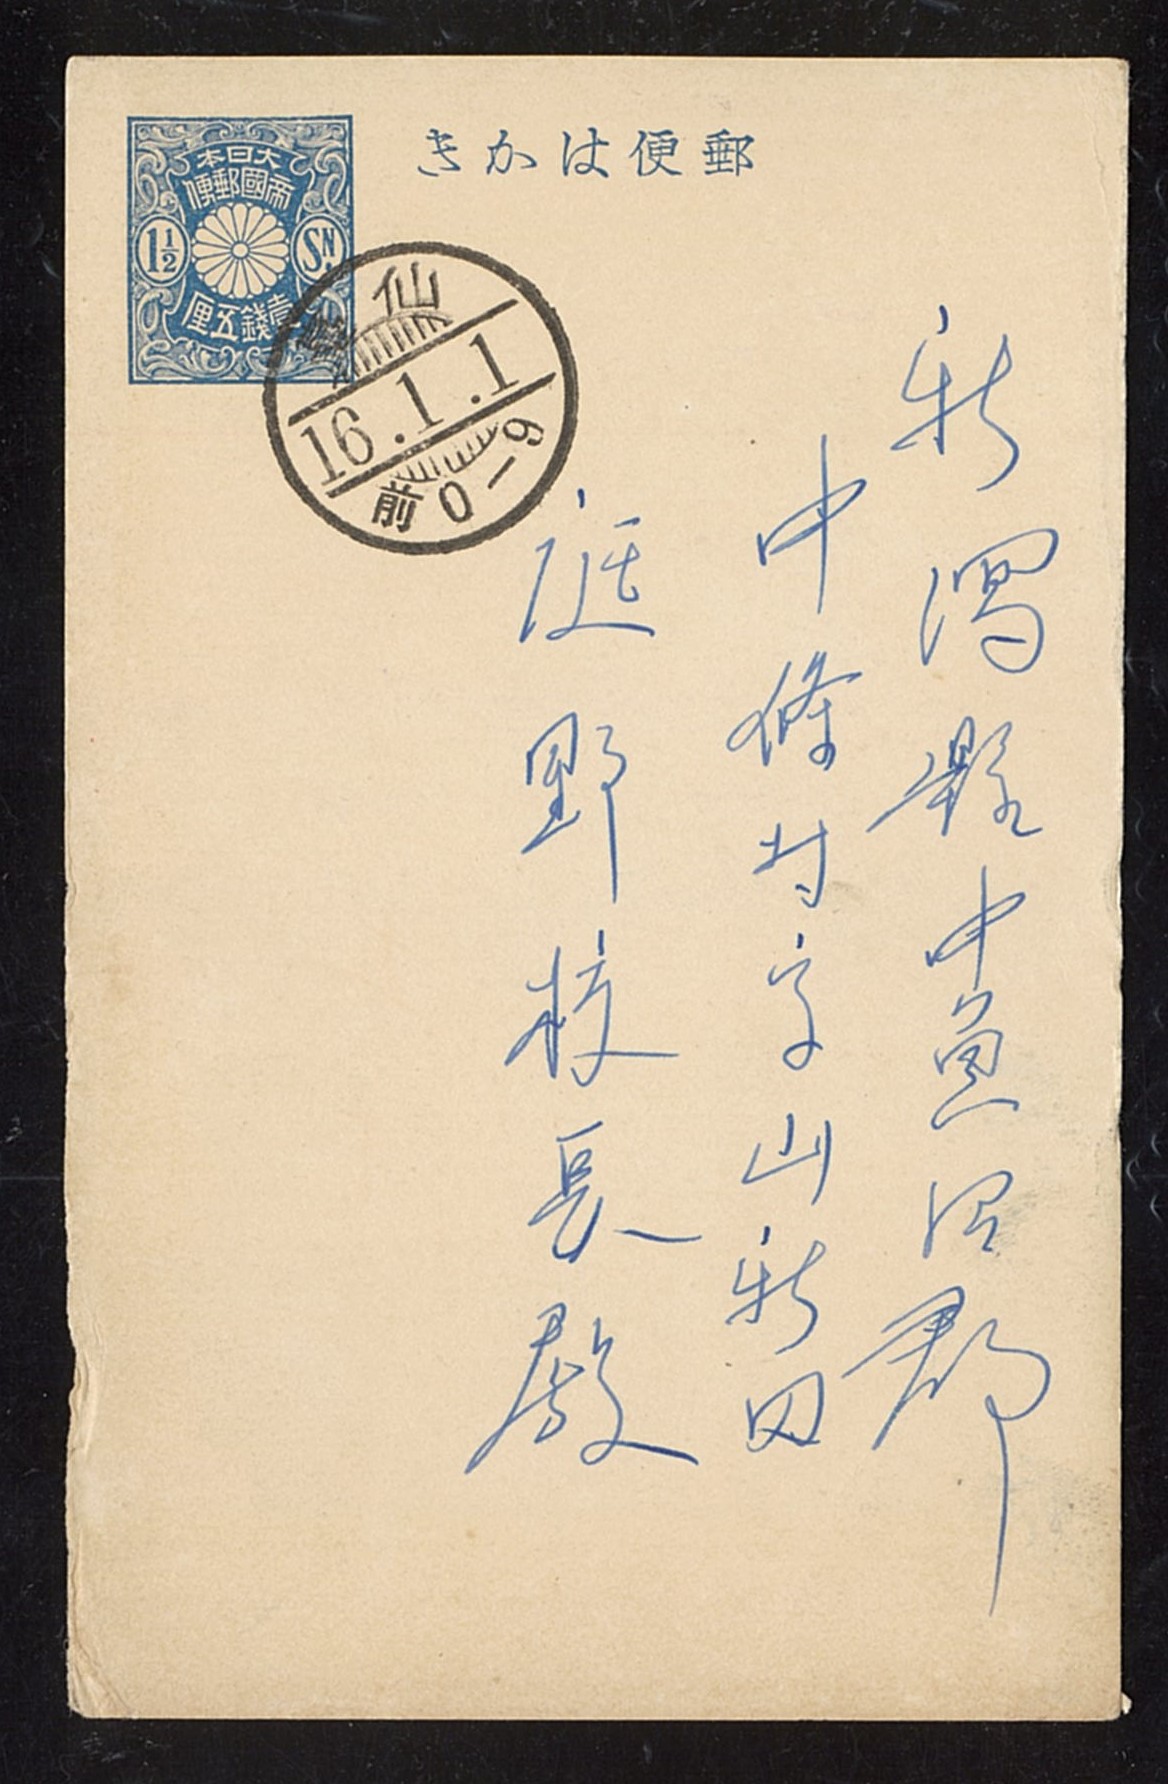 郵便はかき
大日本
帝國郵便
1½
SN.
壹錢五厘
仙臺
16.1.1
前0-9
新潟縣中魚沼郡
中條村字山新田
庭野校長殿